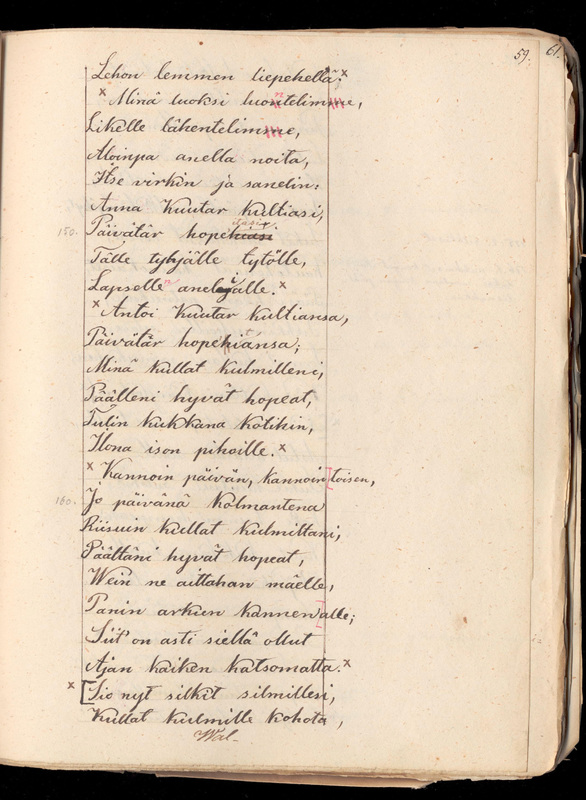 59. 61.
Lehon lemmen liepehellä:
Minä luoksi luontelimme,
Likelle lähentelimme,
Aloinpa anella noita,
Itse virkin ja sanelin:
Anna Kuutar Kultiasi,
150. Päivätär hopehiasi
Tälle tyhjälle tytölle,
Lapsellen anelijalle.
Antoi Kuutar Kultiansa,
Päivätär hopehiansa;
Minä kullat kulmilleni,
Päälleni hyvät hopeat,
Tulin kukkana kotihin,
Ilona ison pihoille.
Kannoin päivän, kannoin toisen,
160. Jo päivänä kolmantena
Riisuin kullat kulmiltani,
Päältäni hyvät hopeat,
Wein ne aittahan mäelle,
Panin arkun kannen alle;
Siit' on asti siellä ollut
Ajan kaiken katsomatta.
Sio nyt silkit silmillesi,
Kullat kulmille kohota,
Wal-